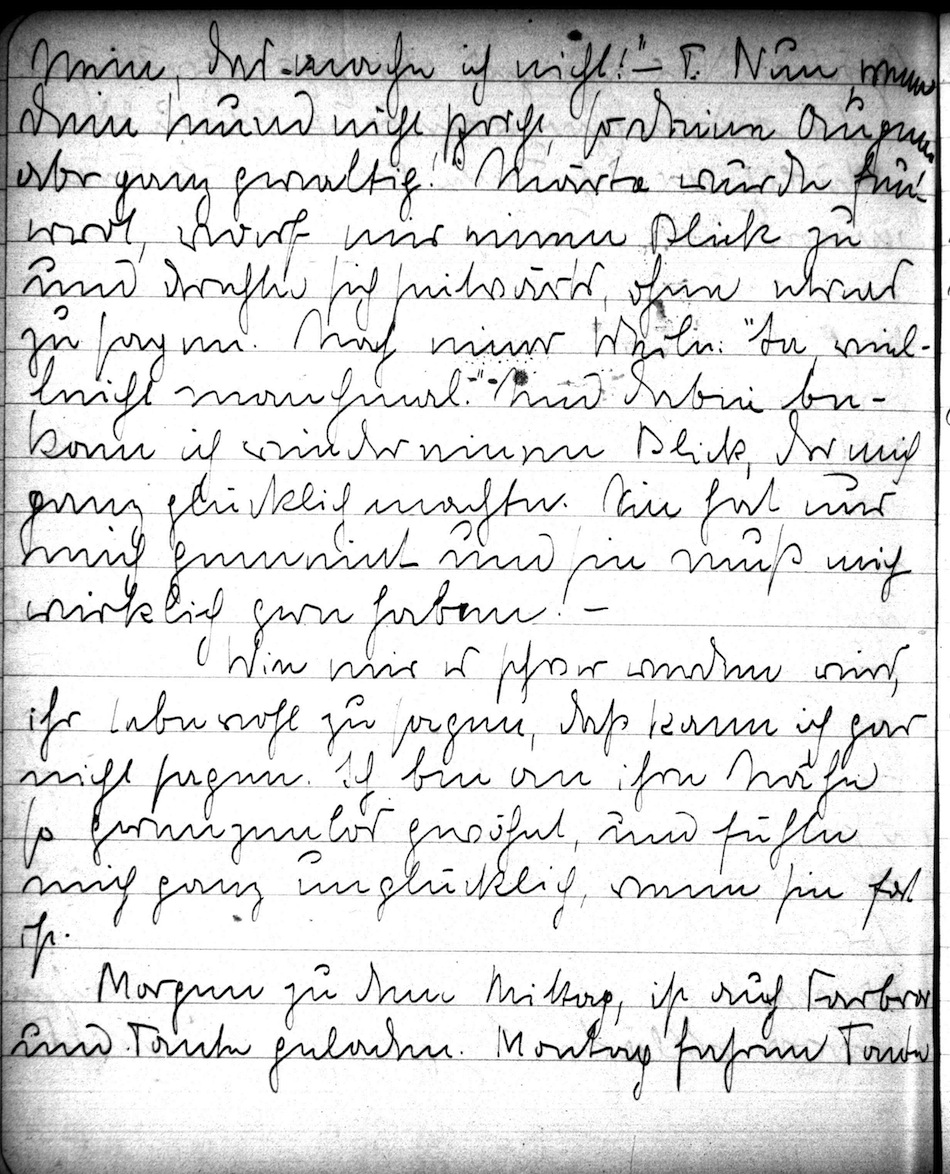 Nein, das mache ich nicht!" – I. Nun wenn
dein Mund nicht spricht, so deine Augen
aber ganz gewaltig! Märta wurde feu-
errot, warf mir einen Blick zu
und drehte sich seitwärts, ohne etwas
zu sagen. Nach einer Weile: "Ja, viel-
leicht manchmal." Und dabei be-
kam ich wieder einen Blick, der mich
ganz glücklich machte. Sie hat nur
mich gemeint und sie muß mich
wirklich gern haben! –
Wie mir es schwer werden wird,
ihr lebewohl zu sagen, daß kann ich gar
nicht sagen. Ich bin an ihre Nähe
so grenzenlos gewöhnt, und fühle
mich ganz unglücklich, wenn sie fort
ist.
Morgen zu dem Mittag, ist auch Farbror
und Tante geladen. Montag fahren Tante